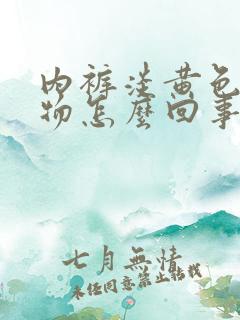 内裤淡黄色
物怎麼回事
七月無情
未经同意禁止转载